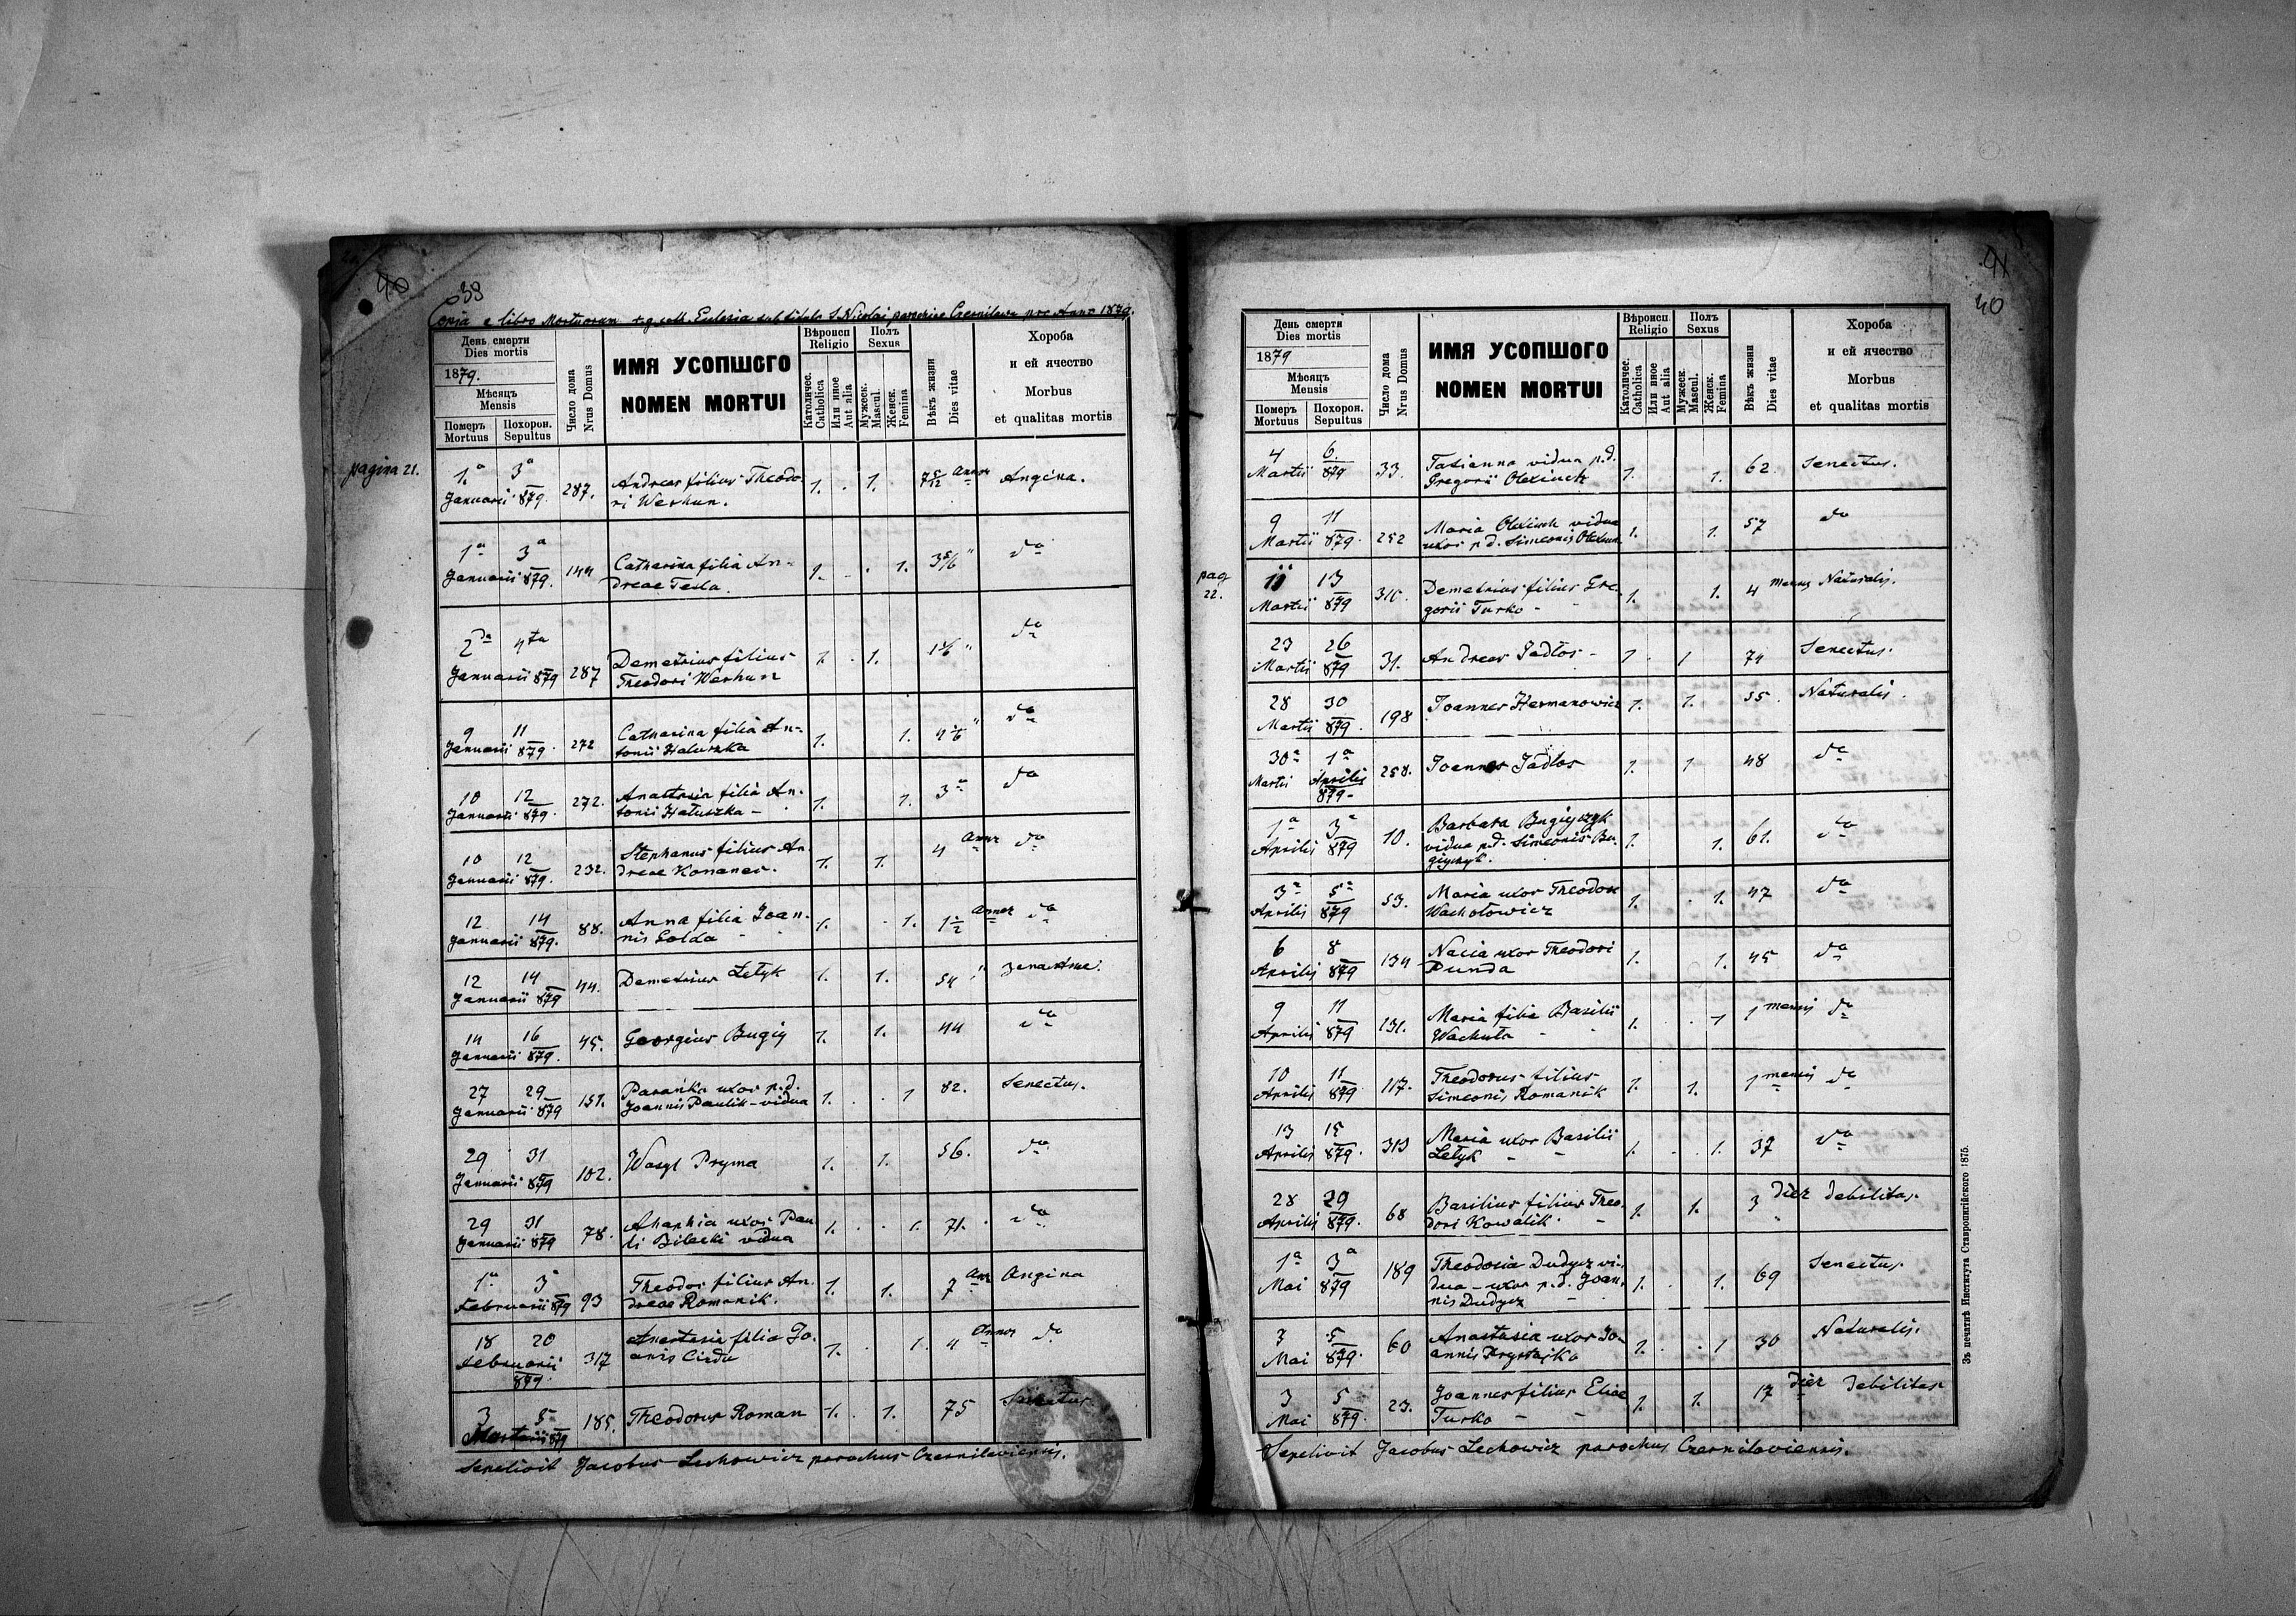 40
39
Copia e libro Mortuorum r. g. cath. Eclesia sub titulo S. Nicolai parochiae Czernilawa pro Anno 1879.
День смерти
Dies mortis
1879.
Мѣсяцъ
Mensis
Померъ
Mortuus
Похорон.
Sepultus
Число дома
Nrus Domus
ИМЯ УСОПШОГО
NOMEN MORTUI
Вѣроисп
Religio
Католичес.
Catholica
Или иное
Aut alia
Полъ
Sexus
Мужеск.
Mascul.
Женск.
Femina
Вѣкъ жизни
Dies vitae
Хороба
и ей ячество
Morbus
et qualitas mortis
pagina 21.
1.a 3a Januarii 879. 287. Andreas filius Theodo-
ri Werhun. 1. 1. Annor Angina.
1a 3a Januarii 879. 144 Catharina filia An-
dreae Tesla. 1. 1. 3 5/6 " da
2da 4ta Januarii 879 287 Demetrius filius
Theodori Werhun 1. 1. 1 1/6 " da
9 11 Januarii 879. 272 Catharina filia An-
tonii Haluszka 1. 1. da
10 12 Januarii 879. 272. Anastasia filia An-
tonii Hałuszka - 1. 1. 3 da
10 12 Januarii 879. 232. Stephanus filius An-
dreae Konanes. 1. 1. 4 Annor da
12 14 Januarii 879. 88. Anna filia Joan-
nis Golda 1. 1. 1 1/2 Annor da
12 14 Januarii 879 44. Demetrius Łetyk 1. 1. 54 "
14 16 Januarii 879. 45. Georgius Bugiy 1. 1. 44 da
27 29 Januarii 879 151. Paranka uxor p. d.
Joannis Pawlik - vidua 1. 1 82. Senectus.
29 31 Januarii 879 102. Wasyl Pryma 1. 1. 56. da
29 31 Januarii 879 78. Ahaphia uxor Pau-
li Bilecki vidua 1. 1. 71. da
1a 3a Februarii 879 93 Theodor filius An-
dreae Romanik. 1. 1. 7 Ann Angina
18 20 Februarii 879. 317 Anastasia filia Jo-
anis Cirdu 1. 1. 4 Annor da
3 5 Martii 879 185. Theodorus Roman 1. 1. 75 Senectus.
Sepelivit Jacobus Lechowicz parochus Czernilaviensis.
41
40
День смерти
Dies mortis
1879
Мѣсяцъ
Mensis
Померъ
Mortuus
Похорон.
Sepultus
Число дома
Nrus Domus
ИМЯ УСОПШОГО
NOMEN MORTUI
Вѣроисп
Religio
Католичес.
Catholica
Или иное
Aut alia
Полъ
Sexus
Мужеск.
Mascul.
Женск.
Femina
Вѣкъ жизни
Dies vitae
Хороба
и ей ячество
Morbus
et qualitas mortis
4 6. Martii 879 33. Tatianna vidua p. d.
Gregorii Olexiuck 1. 1. 62. Senectus.
9 11 Martii 879. 252 Maria Olexiuck vidua
uxor p. d. Simeonis Olexiuk 1. 1. 57 da
pag
22.
11 13 Martii 879 310. Demetrius filius Gre-
gorii Turko - 1. 1. 4 Mens Naturalis.
23 26 Martii 879 31. Andreas Jadłos - 1 1 74 Senectus.
28 30 Martii 879. 198 Joannes Hermanowicz 1. 1. 35 Naturalis.
30a 1a Martii Aprilis 879- 258. Joannes Jadłos 1. 1 48 da
1a 3a Aprilis 879 10. Barbara Bugiyczyk
vidua p. d. Simeonis Bu-
giyczyk. 1. 1. 61. da
3a 5a Aprilis 879 53. Maria uxor Theodori
Wachołowicz 1. 1. 47 da
6 8 Aprilis 879 134 Nacia uxor Theodori
Punda 1. 1. 45 da
9 11 Aprilis 879 131. Maria filia Basilii
Wachuła 1. 1 1 mensis da
10 11 Aprilis 879 117. Theodorus filius
Simeonis Romanik 1. 1. 1 mensis da
13 15 Aprilis 879. 313 Maria uxor Basilii
Łetyk 1. 1. 37 da
28 29 Aprilis 879. 68 Basilius filius Theo-
dori Kowalik. 1. 1. 3 dies debilitas.
1a 3a Mai 879 189 Theodosia Dudycz vi-
dua - uxor p. d. Joan-
nis Dudycz 1. 1. 69 Senectus.
3 5 Mai 879. 60 Anastasia uxor Jo-
annis Krystajko 1. 1 30 Naturalis.
3 5 Mai 879. 23. Joannes filius Eliae
Turko - - 1. 1. 17 dies debilitas
Sepelivit Jacobus Lechowicz parochus Czernilaviensis.
Зъ печатнѣ Института Ставропигійского 1875.